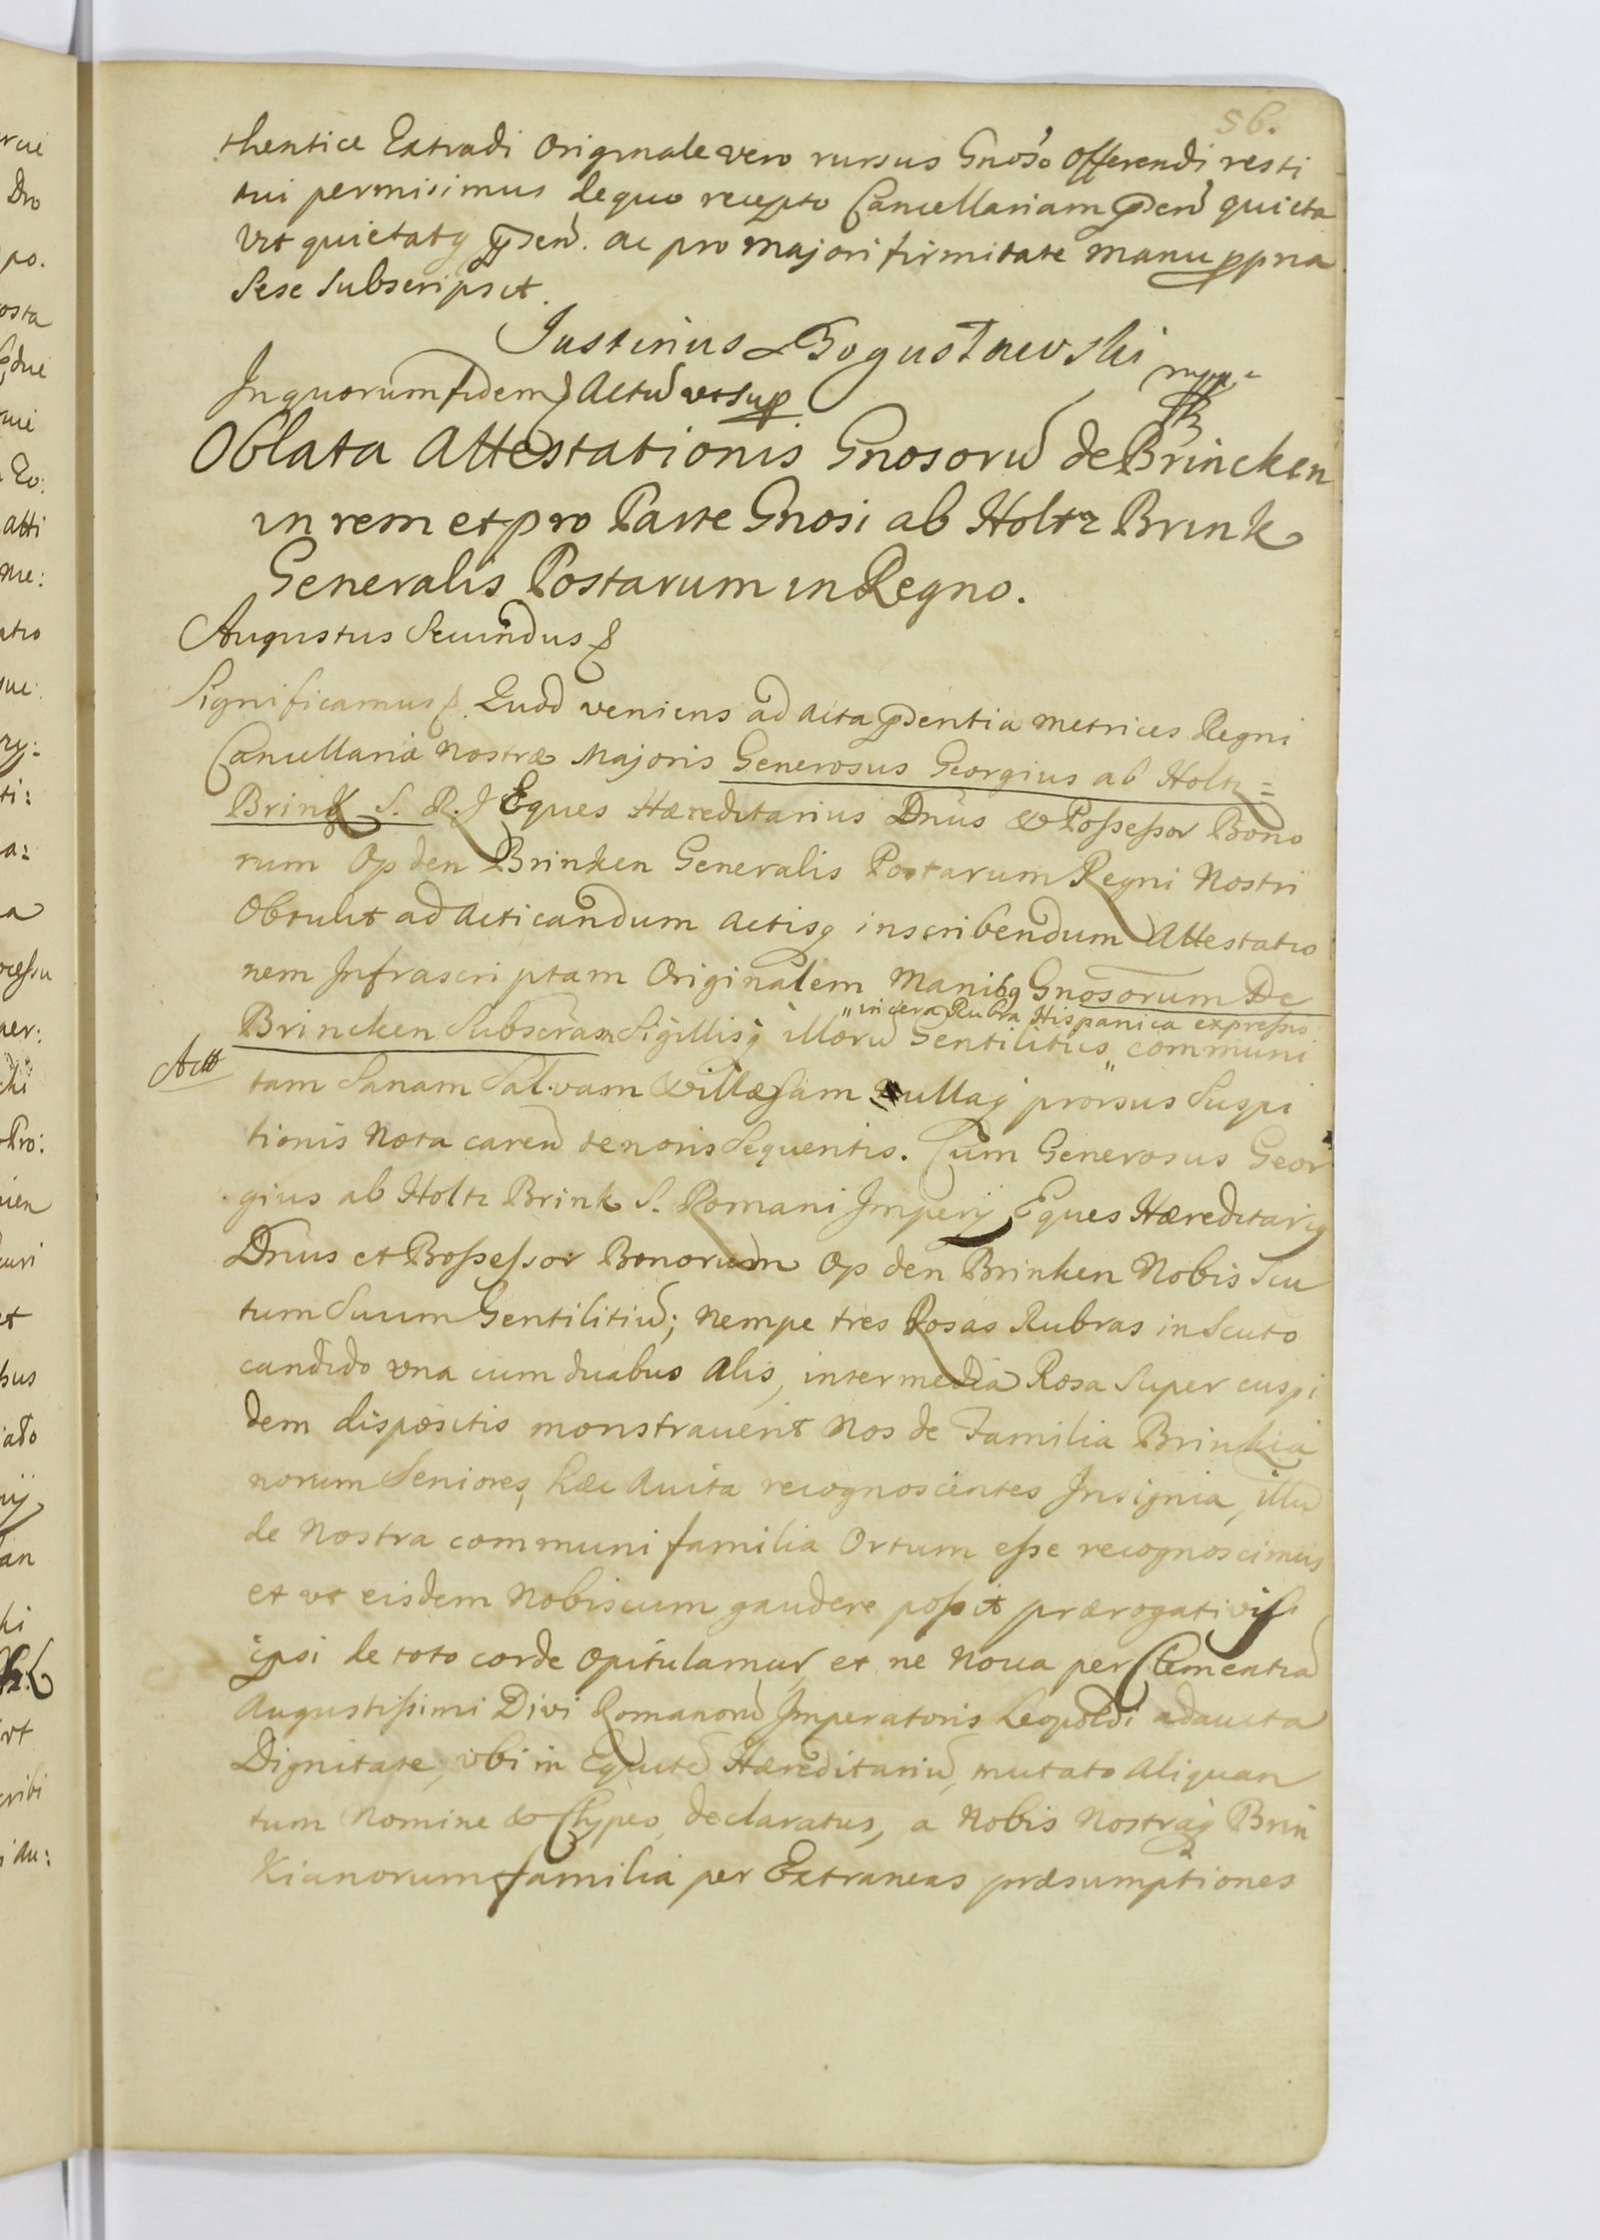 56.
thentice Extradi Originale vero rursus Gnoso Offerendi resti
tui permisimus de quo recepto Cancellariam pñdeñ quieta
vit quietatq pñdeñ. ac pro majori firmitate manu ppria
Sese Subscripsit.
Justinus Bogusławski mpp
In quorum fidem Actũ ut sup
Oblata Attestationis Gnosorũ de Brincken
in rem et pro Parte Gnosi ab Holtz Brink
Generalis Postarum in Regno.
Augustus Secundus
Significamus Quod veniens ad Acta pñdentia Metrices Regni
Cancellaria Nostræ Majoris Generosus Georgius ab Holtz=
Brink S. R. J Eques Hæreditarius Dnus & Possessor Bono
rum Op den Brinken Generalis Postarum Regni Nostri
Obtulit ad Acticandum Actisq inscribendum Attestatio
nem Infrascriptam Originalem Manibq Gnosorum De
" in cera Rubra Hispanica expressis
Brincken Subscram Sigillisq illorũ Gentilitiis " communi
Actt
tam Sanam Salvam & illæsam nullaq prorsus Suspi
tionis Nota careñ tenoris Sequentis. Cum Generosus Geor
gius ab Holtz Brink S. Romani Imperij Eques Hæreditariq
Dnus et Bossessor Bonorum Op den Brinken Nobis Scu
tum Suum Gentilitiũ; Nempe tres Rosas Rubras in Scuto
candido una cum duabus Alis, intermedia Rosa Super cuspi
dem dispositis monstrauerit Nos de Familia Brinkia
norum Seniores, hæc Auita recognoscentes Insignia, illũ
de Nostra communi familia Ortum esse recognoscimus
et ut eisdem Nobiscum gaudere possit prærogativis
ipsi de toto corde Opitulamur, et ne Noua per Clementiã
Augustissimi Divi Romanorũ Imperatoris Leopoldi adaucta
Dignitate, ubi in Equitẽ Hæreditariũ, mutato Aliquan
tum Nomine & Clypeo, declaratus, a Nobis Nostraq Brin
kianorum familia per Extraneas præsumptiones